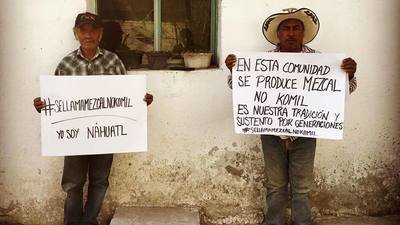 #SELLAMAMEZCALNOKOMIL
YO SOY NÁHUATL
EN ESTA COMUNIDAD
SE PRODUCE MEZCAL
NO KOMIL
ES NUESTRA TRADICIÓN Y
SUSTENTO POR GENERACIONES
#SELLAMAMEZCALNOKOMIL